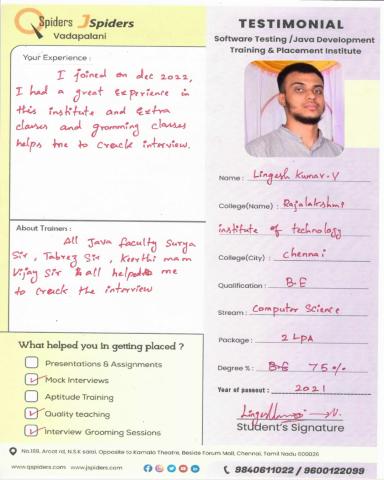 QSpiders JSpiders
Vadapalani
TESTIMONIAL
Software Testing /Java Development
Training & Placement Institute
Your Experience :
I joined on dec 2022,
I had a great experience in
this institute and extra
classes and gromming classes
helps me to creack interview.
About Trainers :
All Java faculty Surya
Sir, Tabrez Sir, Keerthi mam
Vijay Sir & all helped me
to creack the interview
What helped you in getting placed ?
Presentations & Assignments
Mock Interviews
Aptitude Training
Quality teaching
Interview Grooming Sessions
Name : Lingesh Kumar.V
College(Name) : Rajalakshmi
institute of technology
College(City) : Chennai
Qualification : B.E
Stream : Computer Science
Package : 2 LPA
Degree % : B.E 75%
Year of passout : 2021
Student's Signature
No.188, Arcot rd, N.S.K salai, Opposite to Kamala Theatre, Beside Forum Mall, Chennai, Tamil Nadu 600026
www.qspiders.com www.jspiders.com
9840611022 / 9600122099